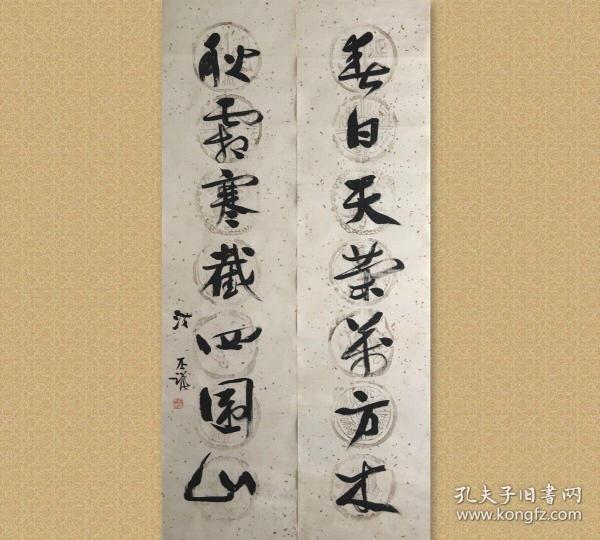 春日天荣万方木
秋霜寒截四园山
孔夫子旧书网
www.kongfz.com